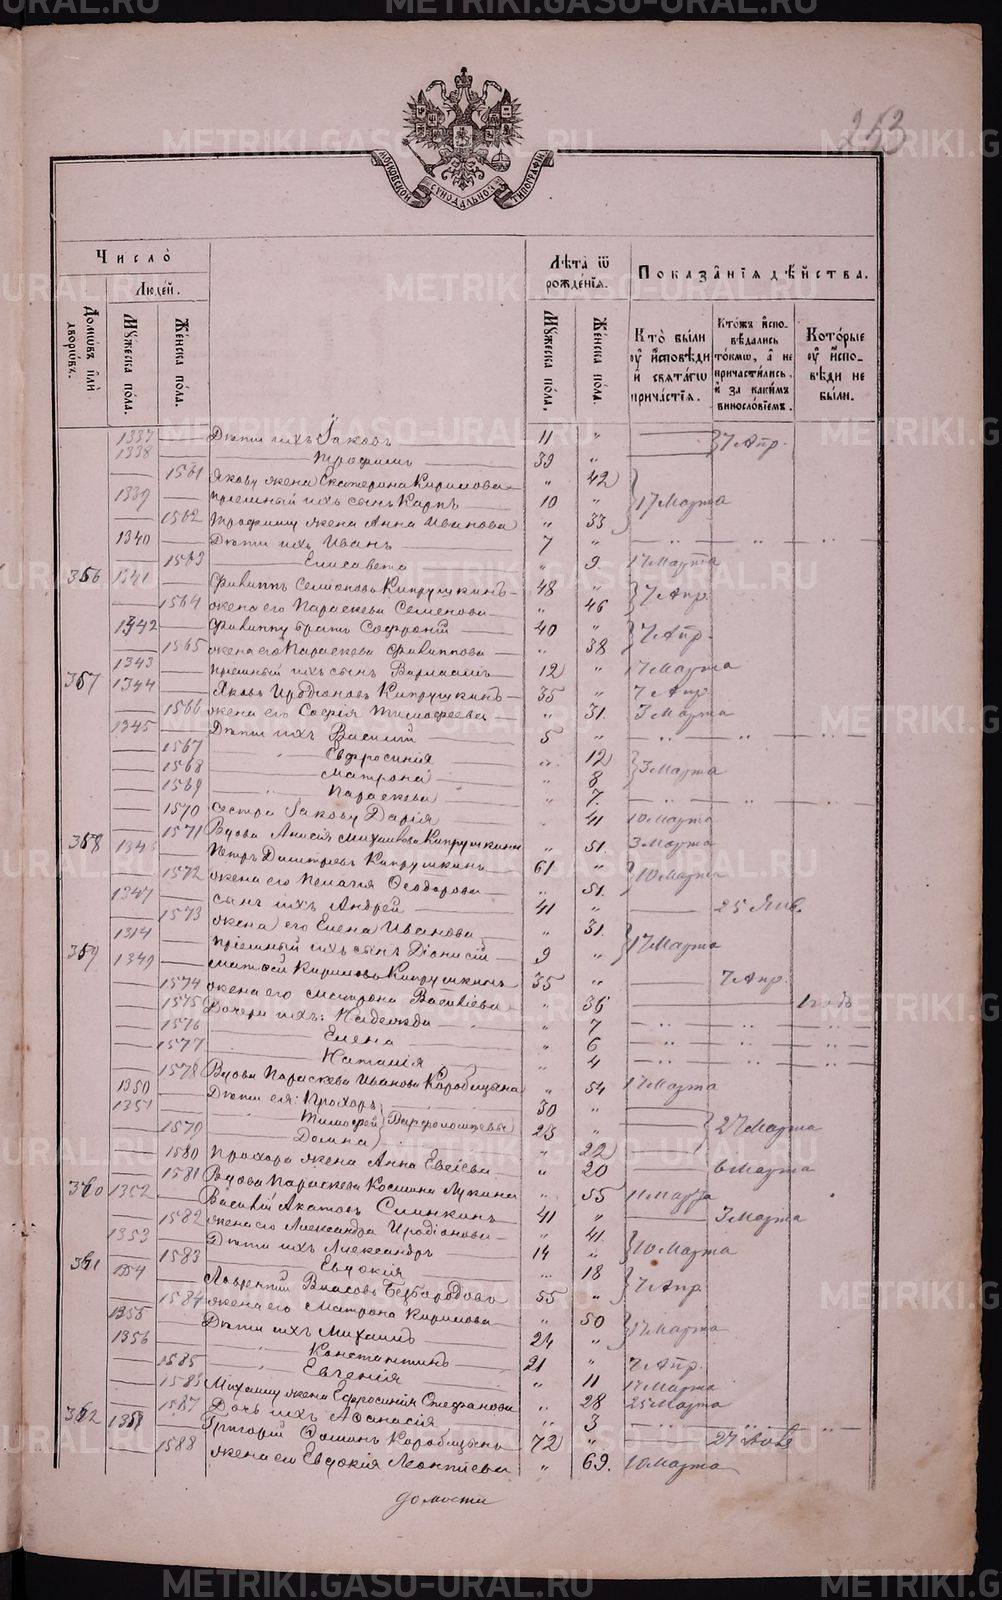 METRIKI.GASO-URAL.RU
263
МОСКОВСКОЙ СѴНОДАЛЬНОЙ ТИПОГРАФІИ
Число̀
Домѡвъ и҆лѝ дворѡвъ.
Люде́й.
Мꙋ́жеска по́ла.
Же́нска по́ла.
Лѣ̑та ѿ рожде́нїѧ.
Мꙋ́жеска по́ла.
Же́нска по́ла.
Показа̑нїѧ дѣ́йства.
Кто̀ бы́ли оу҆ и҆сповѣ́ди и҆ свѧта́гѡ прича́стїѧ.
Кто́жъ и҆сповѣ́дались то́кмѡ, а҆ не причасти́лись, и҆ за каки́мъ винослові́емъ.
Кото́рые оу҆ и҆сповѣ́ди не бы́ли.
1337 Дѣти ихъ Іаковъ 11 " 7 Апр.
1338 Трофимъ 39 "
1561 Якову жена Екатерина Кирилова " 42
1339 пріемный ихъ сынъ Карпъ 10 " 17 Марта
1562 Трофиму жена Анна Иванова " 33
1340 Дѣти ихъ Иванъ 7 "
1563 Елисавета " 9 17 Марта
356 1341 Филиппъ Семіоновъ Кипрушкинъ 48 " 7 Апр.
1564 жена его Параскева Семенова " 46
1342 Филиппу братъ Софроній 40 " 7 Апр.
1565 жена его Параскева Филиппова " 38
1343 пріемный ихъ сынъ Варлаамъ 12 " 17 Марта
357 1344 Яковъ Иродіоновъ Кипрушкинъ 35 " 7 Апр.
1566 жена его Софія Тимофеева " 31. 3 Марта
1345 Дѣти ихъ Василій 5 "
1567 Евфросинія " 12 3 Марта
1568 Матрона " 8
1569 Параскева " 7.
1570 Сестра Іакову Дарія 41 10 Марта
1571 Вдова Анисія Михаилова Кипрушкина " 51. 3 Марта
358 1346 Петръ Димитріевъ Кипрушкинъ 61 " 10 Марта
1572 жена его Пелагія Ѳеодорова " 51.
1347 сынъ ихъ Андрей 41 " 25 Янв.
1573 жена его Елена Иванова " 31. 17 Марта
пріемный ихъ сынъ Діонисій 9 "
359 1349 Матѳей Кириловъ Кипрушкинъ 35 " 7 Апр.
1574 жена его Матрона Василіева " 36 1 годъ
1575 Дочери ихъ: Надежда " 7
1576 Елена " 6
1577 Наталія " 4
1578 Вдова Параскева Иванова Коробицына " 54 17 Марта
1350 Дѣти ея: Прохоръ 30 "
1351 Тимофей Варфоломеевы 23 " 27 Марта
1579 Домна " 22
1580 Прохора жена Анна Евсіева " 20 6 Марта
1581 Вдова Параскева Косьмина Лукина " 55 11 Марта
360 1352 Василій Акатовъ Слинкинъ 41 " 3 Марта
1582 жена его Александра Иродіонова " 41. 10 Марта
1353 Дѣти ихъ Александръ 14 "
1583 Евдокія 18 7 Апр.
361 1354 Лаврентій Власовъ Безбородовъ 55 "
1584 жена его Матрона Кирилова " 50 17 Марта
1355 Дѣти ихъ Михаилъ 24 "
1356 Константинъ 21 " 7 Апр.
1585 Евгенія " 11 17 Марта
1586 Михаилу жена Ефросинія Стефанова " 28 25 Марта
1587 Дочь ихъ Аѳанасія " 3
362 Григорій Ѳоминъ Коробицынъ 72 "
1588 жена его Евдокія Леонтіева " 69. 10 Марта